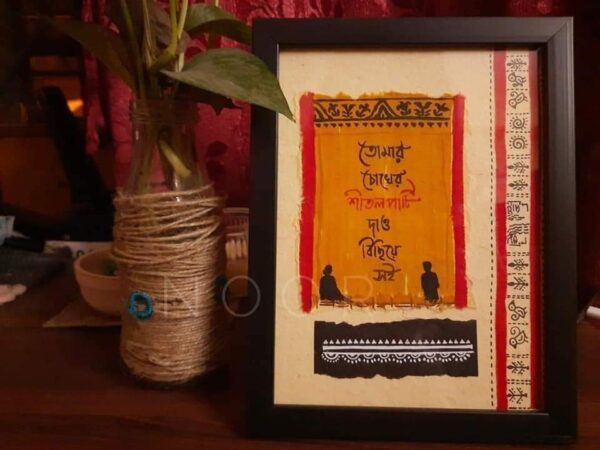 তোমার
চোখের
শীতল পাটি
দাও
বিছিয়ে
সই
NOOR